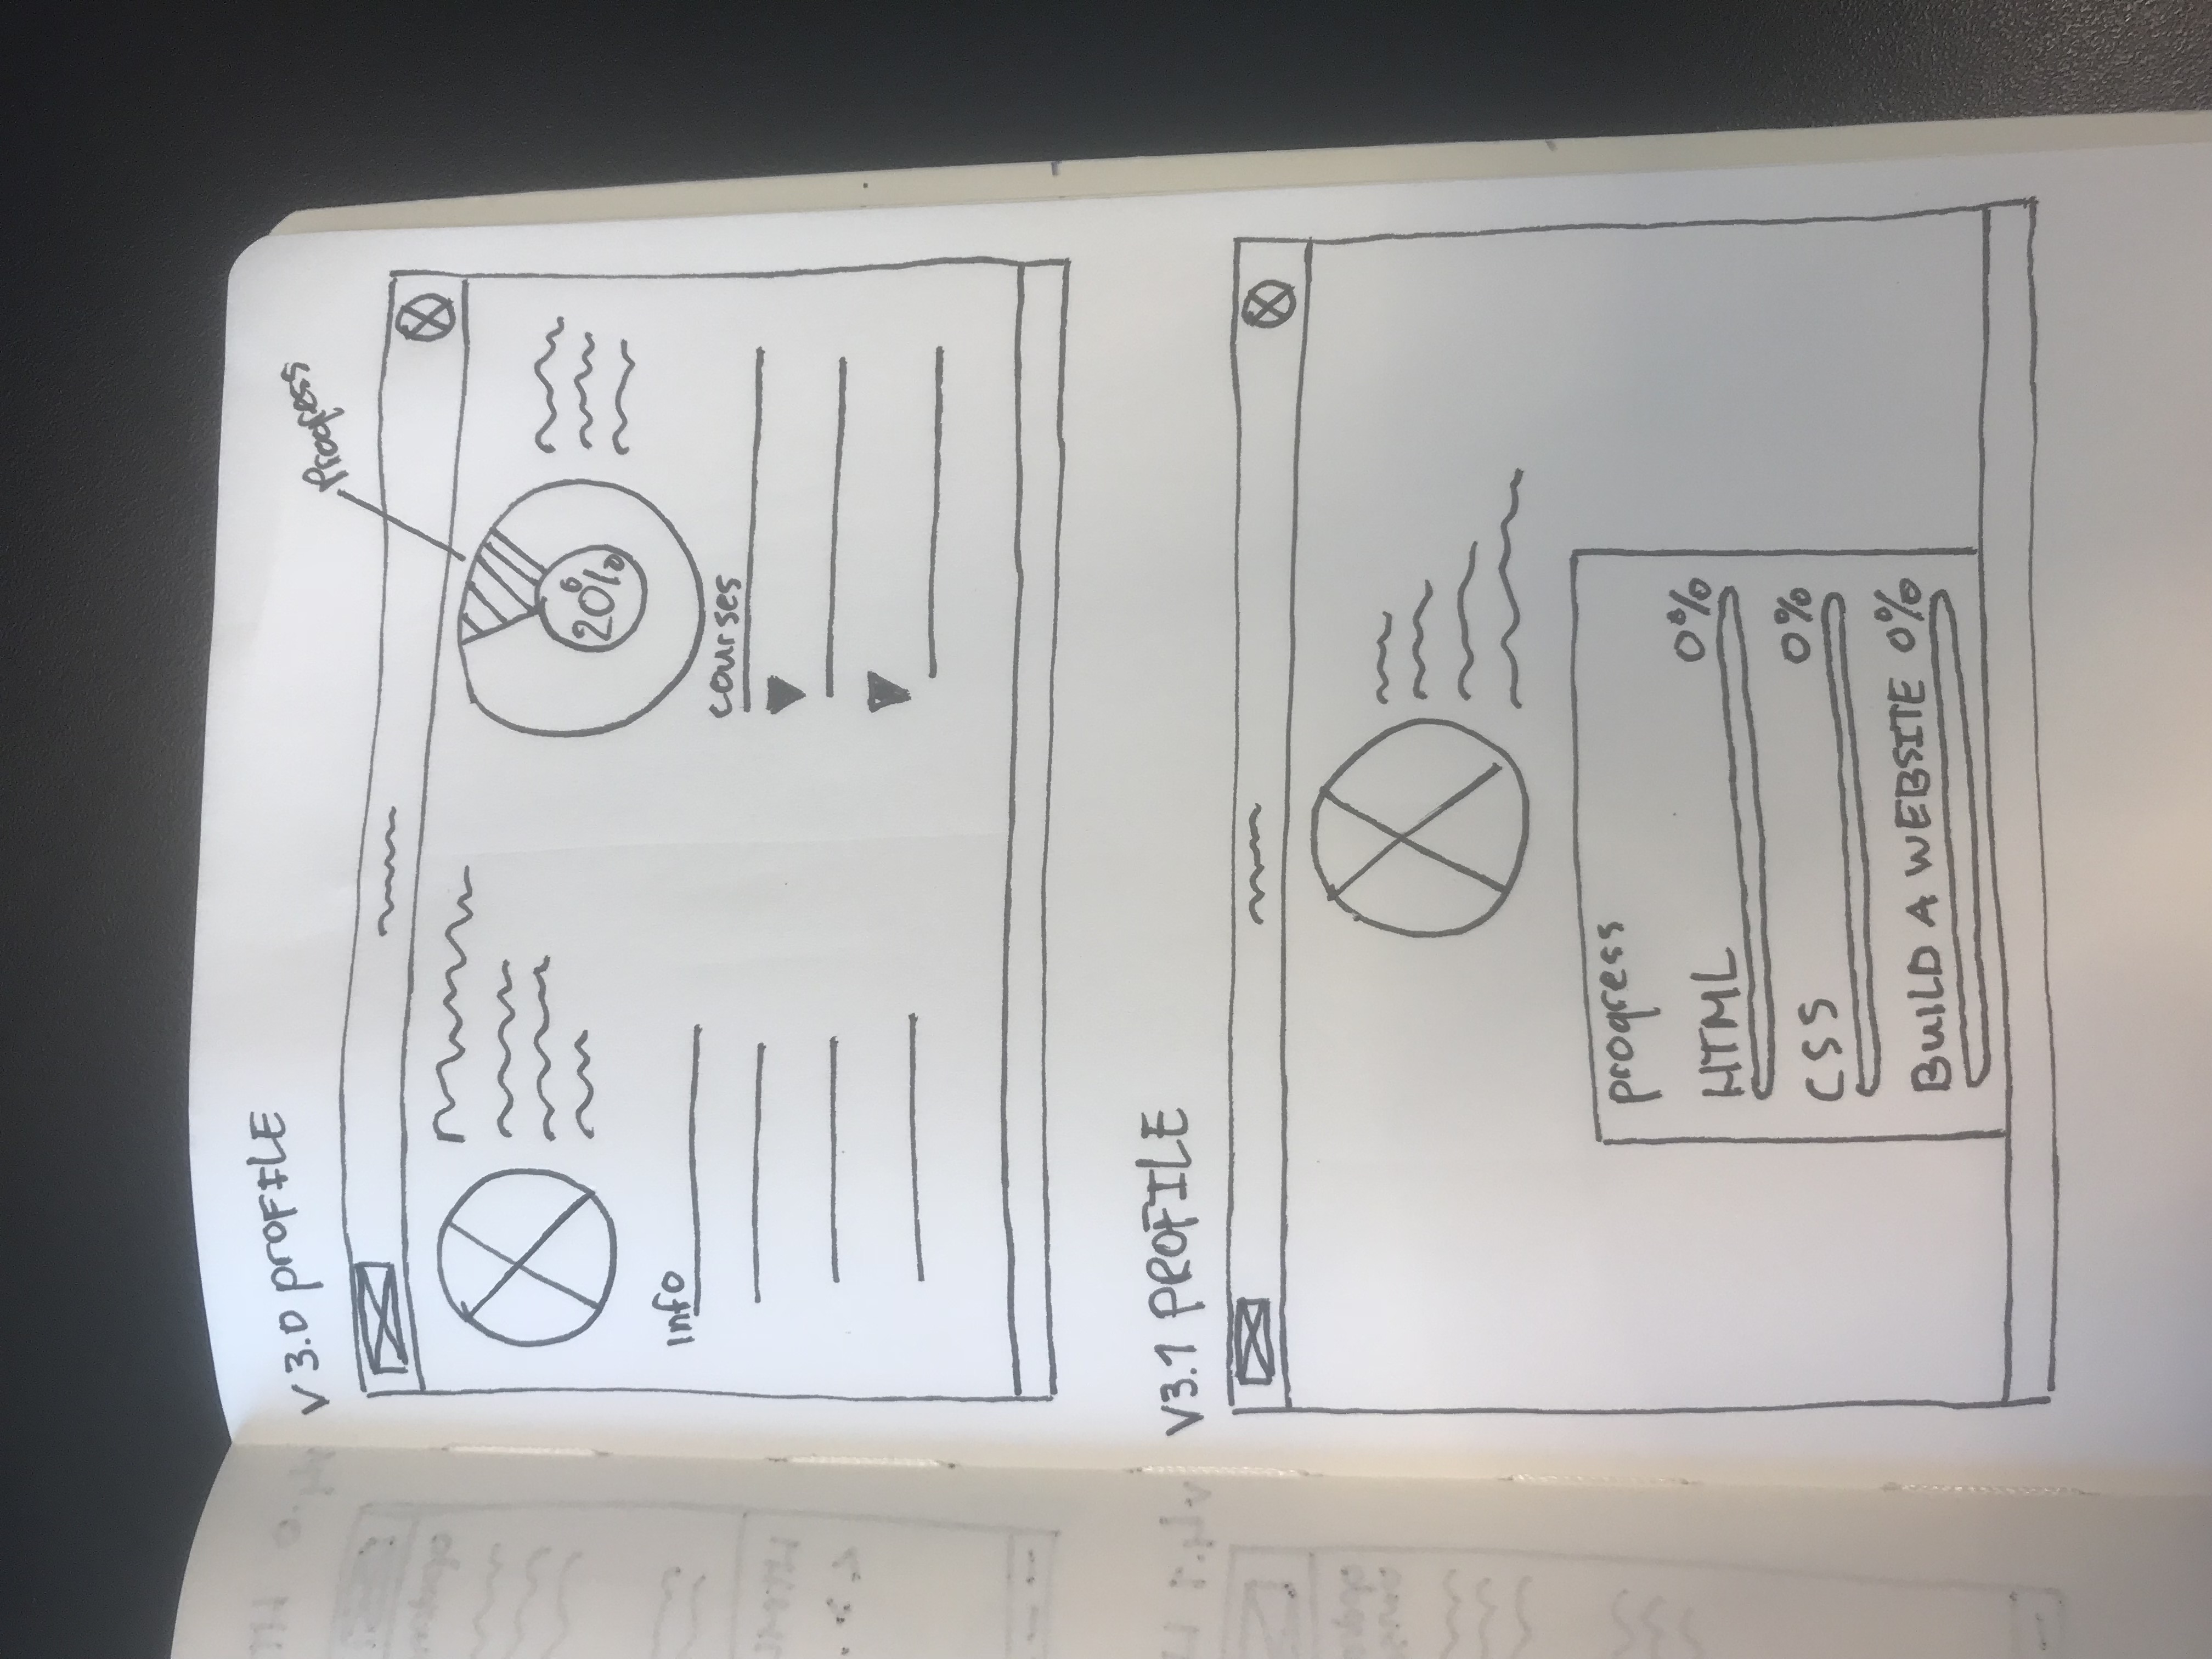 v 3.0 profile
Progress
20%
Info
courses
V3.1 PROFILE
progress
HTML 0%
CSS 0%
BUILD A WEBSITE 0%